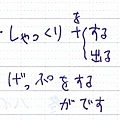 ・しゃっくり+をする
出る
げっぷをする
がです